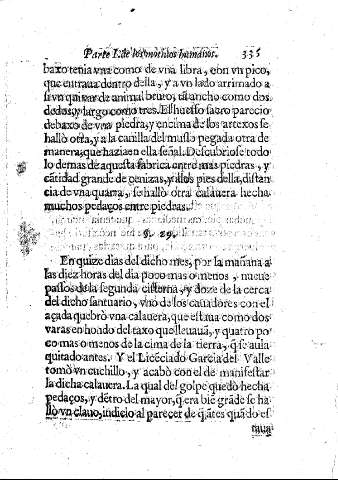 Parte I. de los muchos humanos. 335
baxo tenia vna como de vna libra, con vn pico,
que entraua dentro della, y a vo lado arrimado a
si vn quixar de animal bruto, tā ancho como dos
dedos, y largo como tres. El huesso sacro parecio
debaxo de vna piedra, y encima de los artexos se
hallò otra, y a la canilla del muslo pegada otra de
manera, que hazian ella señal. Descubriose todo
lo demas de aquesta fabrica entre mas piedras, y
cātidad grande de cenizas, y a los pies della, distan
cia de vna quarta, se hallò otra calauera hecha
muchos pedaços entre piedras.
§. 29.
En quize dias del dicho mes, por la mañana a
las diez horas del dia poco mas o menos, nueue
passos de la segunda cisterna, y doze de la cerca
del dicho santuario, vno de los cauadores con el
açada quebrò vna calauera, que estaua como dos
varas en hondo del taxo que lleuauā, y quatro po
co mas o menos de la cima de la tierra, q̄ se auia
quitado antes. Y el Licēciado Garcia del Valle
tomò vn cuchillo, y acabò con el de manifestar
la dicha calauera. La qual del golpe quedò hecha
pedaços, y dētro del mayor, q̄ era biē grāde se ha
llò vn clauo, indicio al parecer de q̄ ātes quādo es
taua